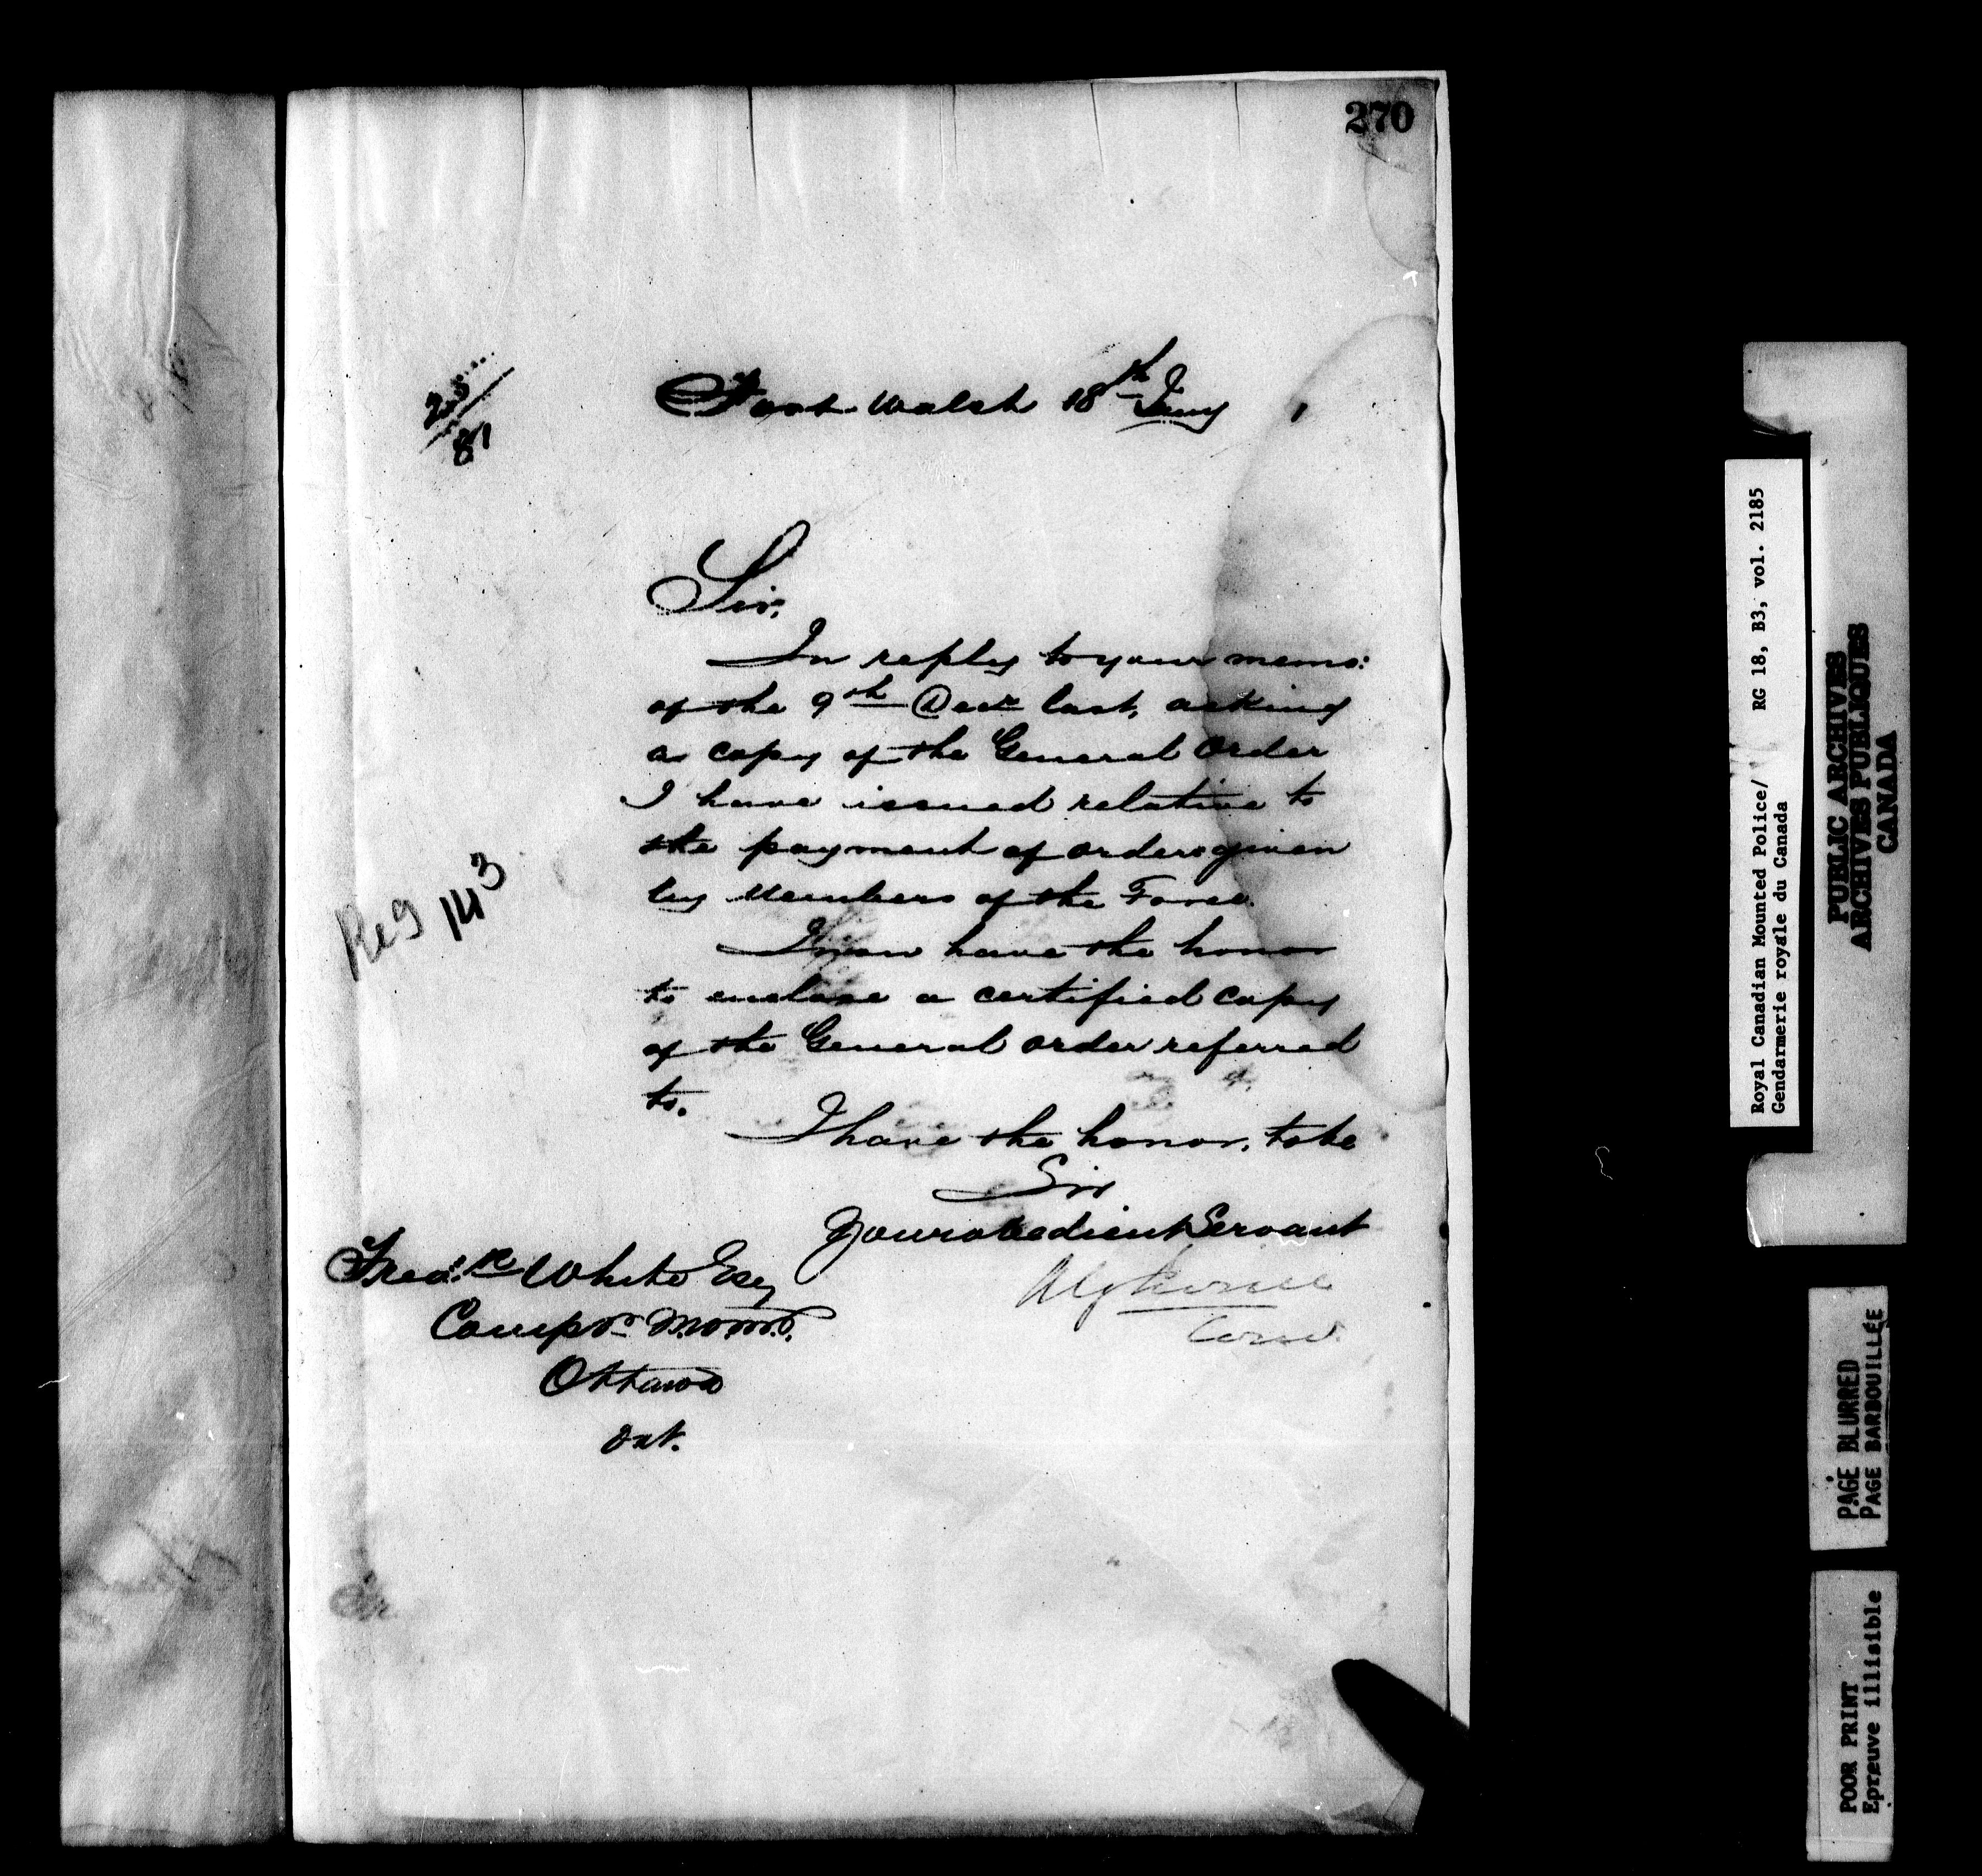 270
Fort Walsh 18th Jany
81
Sir,
In reply to your memo:
of the 9th Decr last, asking
a copy of the General Order
I have issued relative to
the payment of orders given
by Members of the Force.
I now have the honor
to enclose a certified copy
of the General order referred
to.
I have the honor, to be
Sir
Your obedient Servant
Comr.
Fredk White Esq
Comptr N.W.M.P.
Ottawa
Ont.
Reg 143
Royal Canadian Mounted Police/ RG 18, B3, vol. 2185
Gendarmerie royale du Canada
PUBLIC ARCHIVES
ARCHIVES PUBLIQUES
CANADA
PAGE BLURRED
PAGE BARBOUILLÉE
POOR PRINT
Epreuve illisible